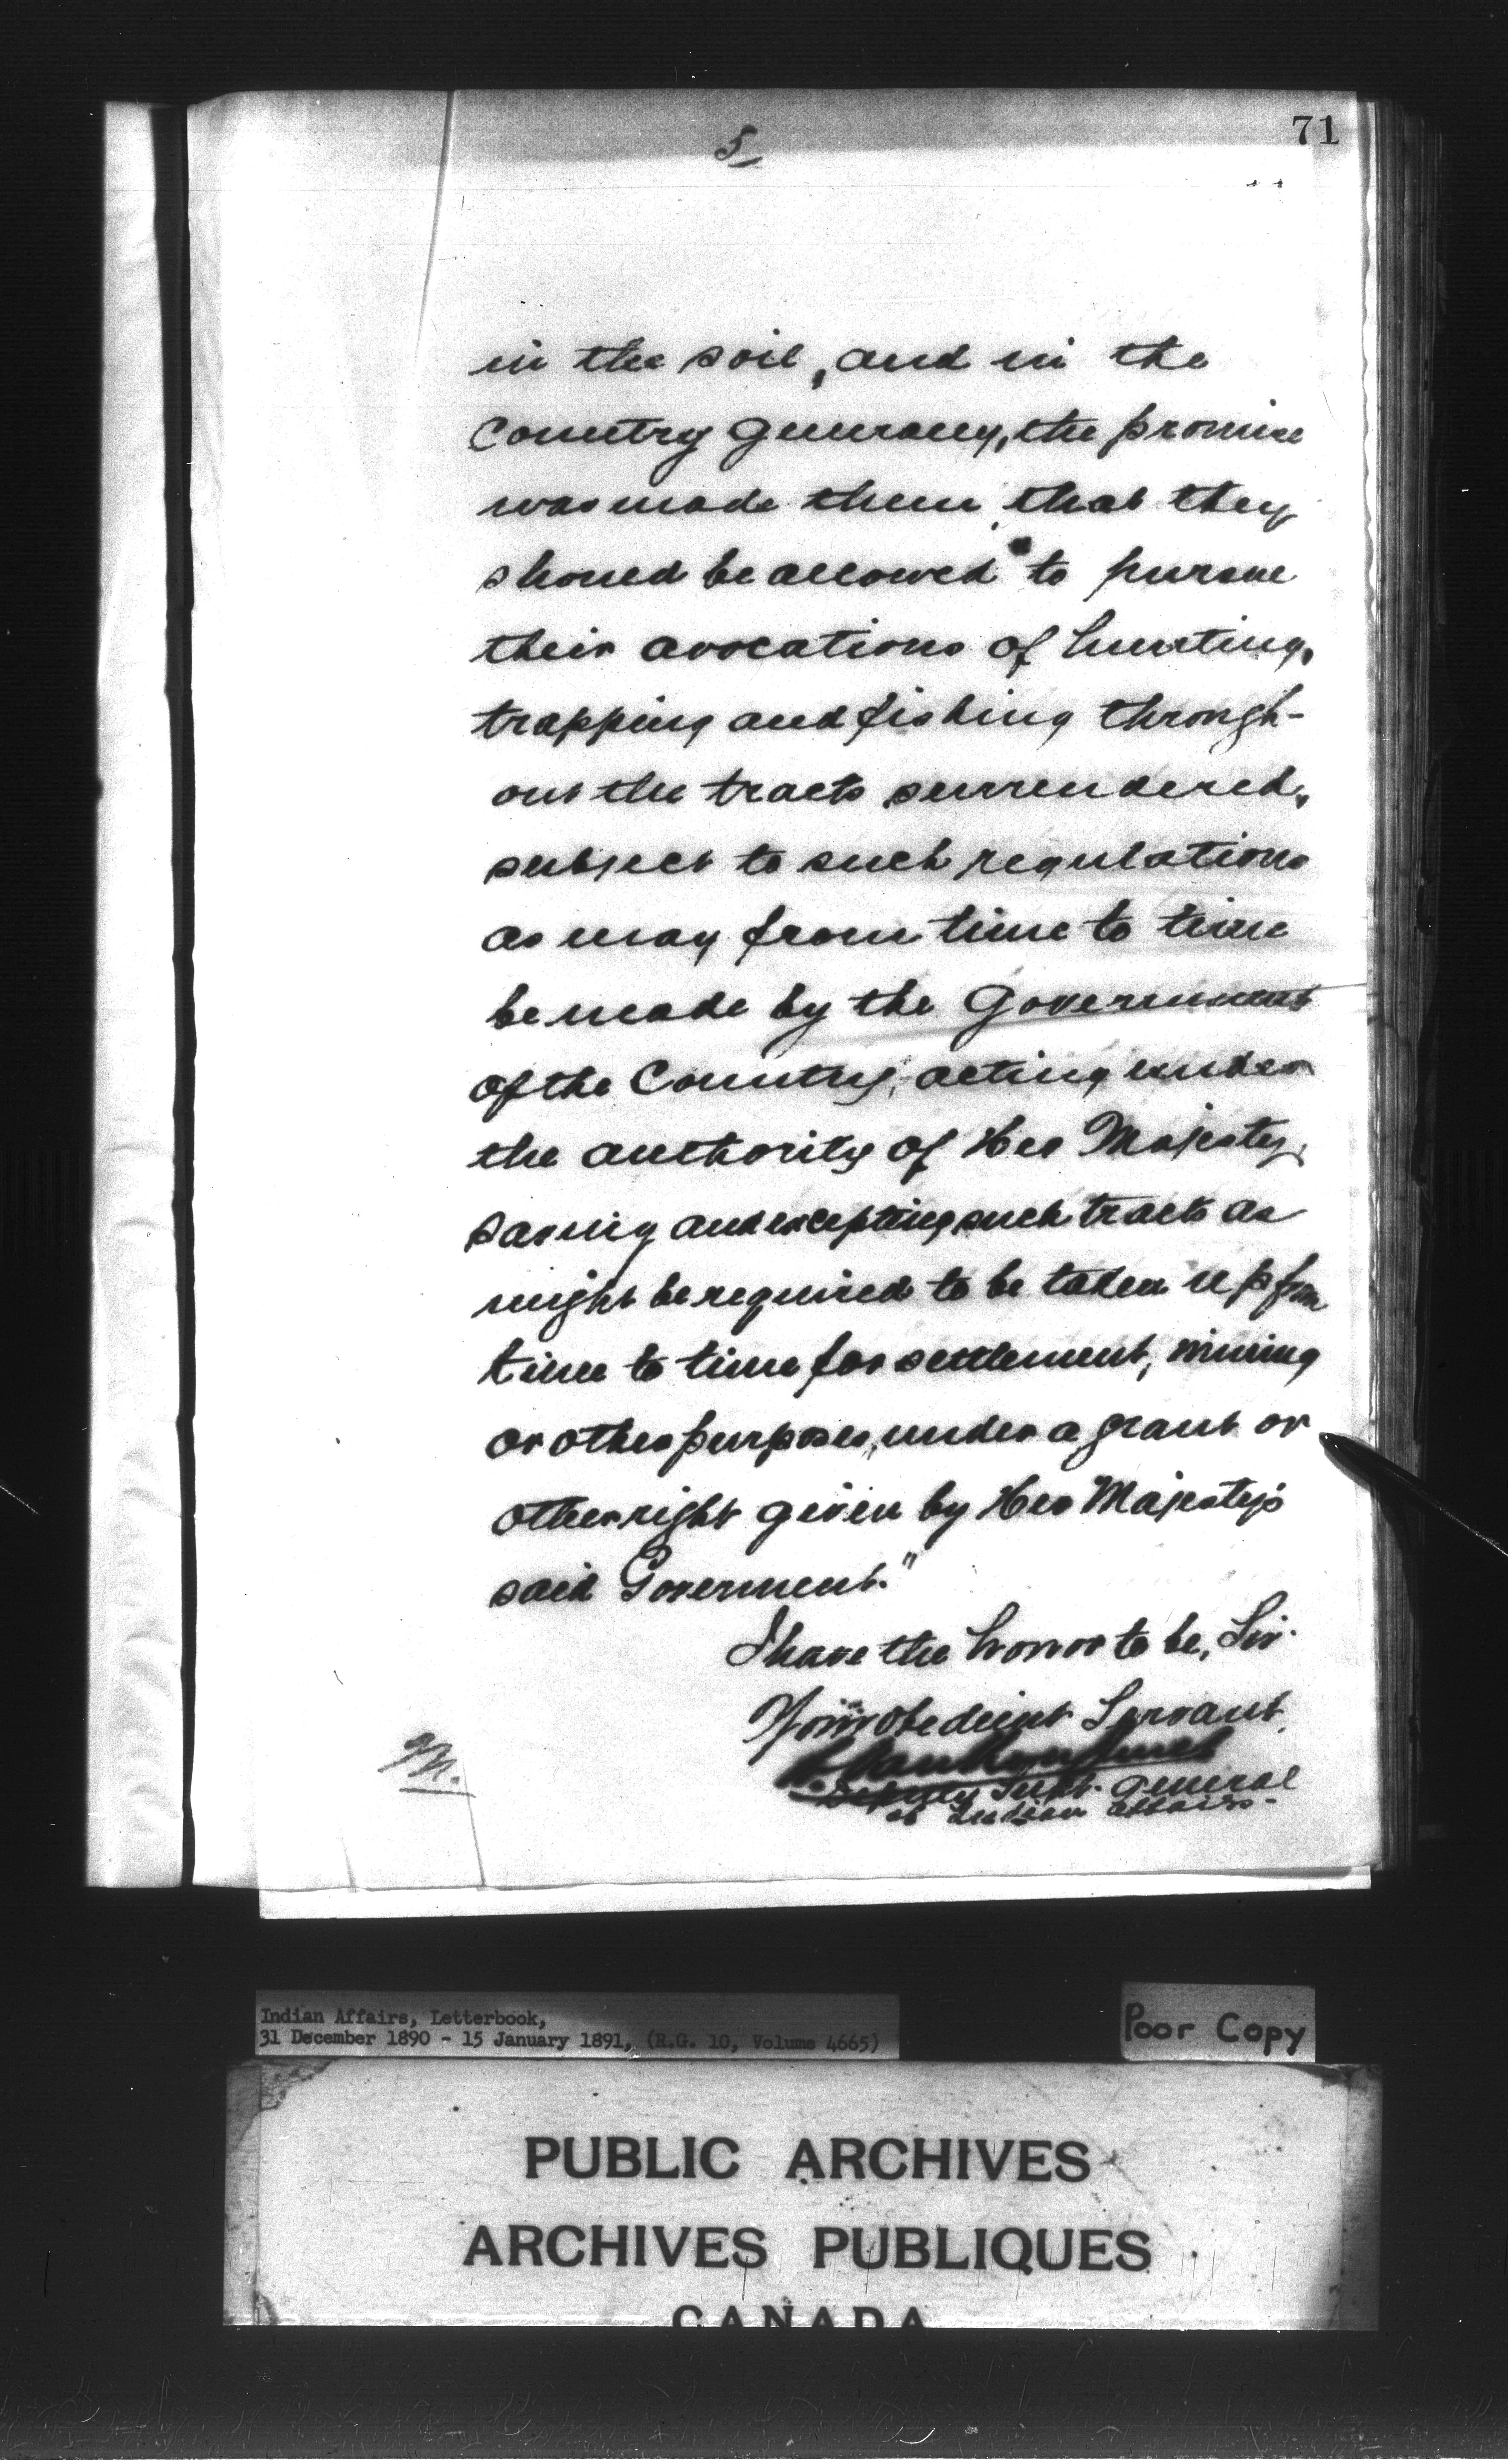 71
5
in the soil, and in the
Country generally, the promise
was made them that they
should be allowed to pursue
their avocations of hunting,
trapping and fishing through-
out the tracts surrendered,
subject to such regulations
as may from time to time
be made by the Government
of the Country, acting under
the authority of Her Majesty,
saving and excepting such tracts as
might be required to be taken up from
time to time for settlement, mining
or other purposes, under a grant or
other right given by Her Majesty's
said Goverment."
I have the honor to be, Sir.
Your obedient Servant
Deputy Supt. General
of Indian Affairs.
M.
Indian Affairs, Letterbook,
31 December 1890 - 15 January 1891, (R.G. 10, Volume 4665)
Poor Copy
PUBLIC ARCHIVES
ARCHIVES PUBLIQUES
CANADA